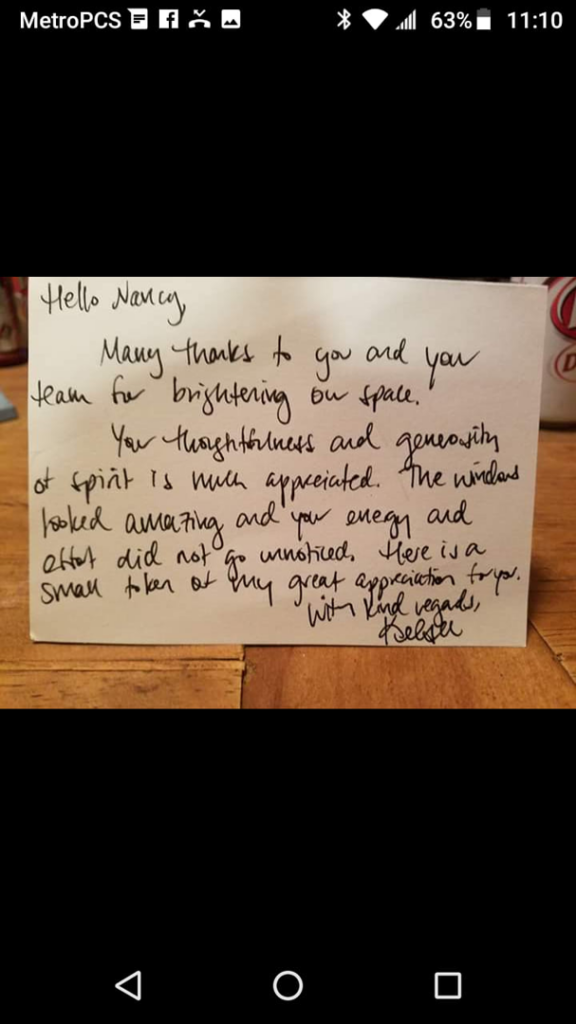 MetroPCS 63% 11:10
Hello Nancy,
Many thanks to you and your
team for brightening our space.
Your thoughtfulness and generosity
of spirit is much appreciated. The windows
looked amazing and your energy and
effort did not go unnoticed. Here is a
small token of my great appreciation for you.
With kind regards,